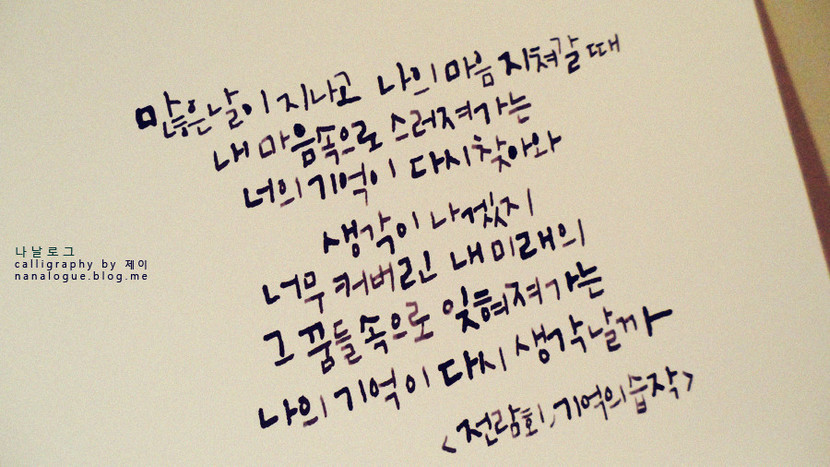 많은 날이 지나고 나의 마음 지쳐갈 때
내 마음속으로 스러져가는
너의 기억이 다시 찾아와
생각이 나겠지
너무 커버린 내 미래의
그 꿈들 속으로 잊혀져가는
나의 기억이 다시 생각날까
<전람회, 기억의 습작>
나날로그
calligraphy by 제이
nanalogue.blog.me